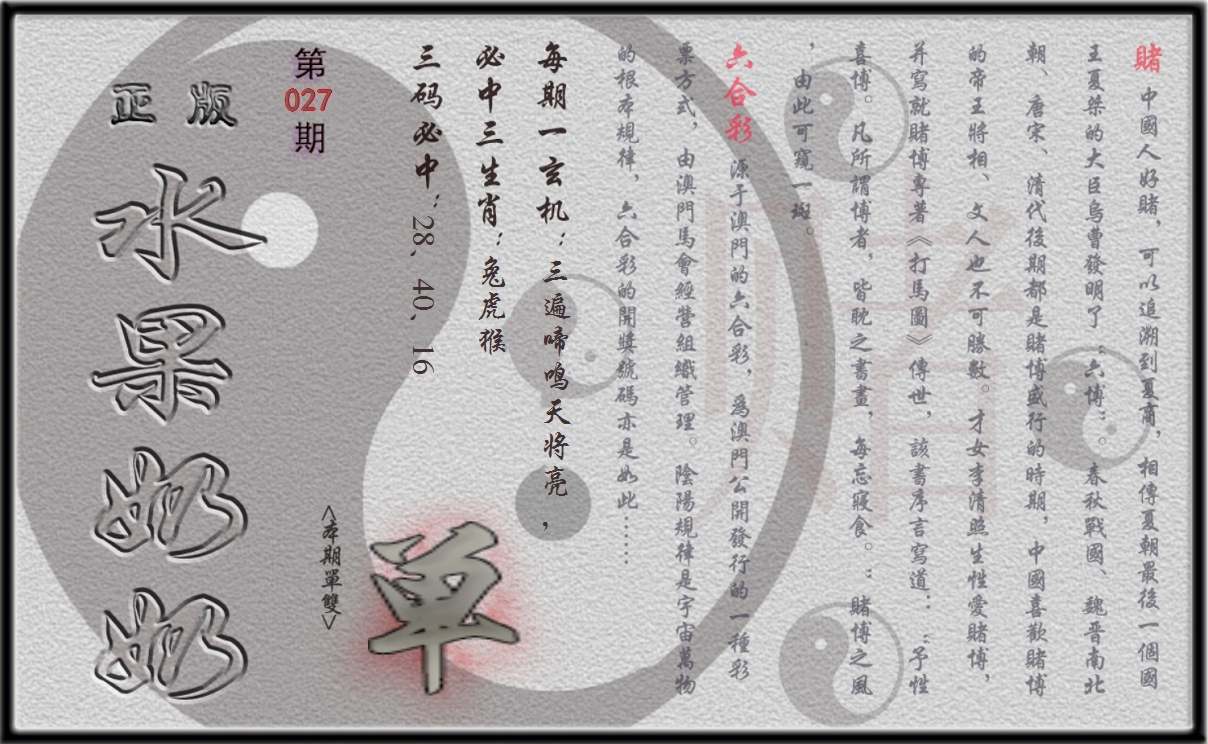 賭 中國人好賭，可以追溯到夏商，相傳夏朝最後一個國
王夏桀的大臣烏曹發明了“六博”。春秋戰國、魏晉南北
朝、唐宋、清代後期都是賭博盛行的時期，中國喜歡賭博
的帝王將相、文人也不可勝數。才女李清照生性愛賭博，
并寫就賭博專著《打馬圖》傳世，該書序言寫道：“予性
喜博。凡所謂博者，皆耽之書晝，每忘寢食。：賭博之風
，由此可窺一斑。
六合彩 源于澳門的六合彩，爲澳門公開發行的一種彩
票方式，由澳門馬會經營組織管理。陰陽規律是宇宙萬物
的根本規律，六合彩的開獎號碼亦是如此……
每期一玄机：三遍啼鸣天将亮，
必中三生肖：兔虎猴
三码必中：28、40、16
第
027
期
<本期單雙>
单
正版
水果奶奶
赌